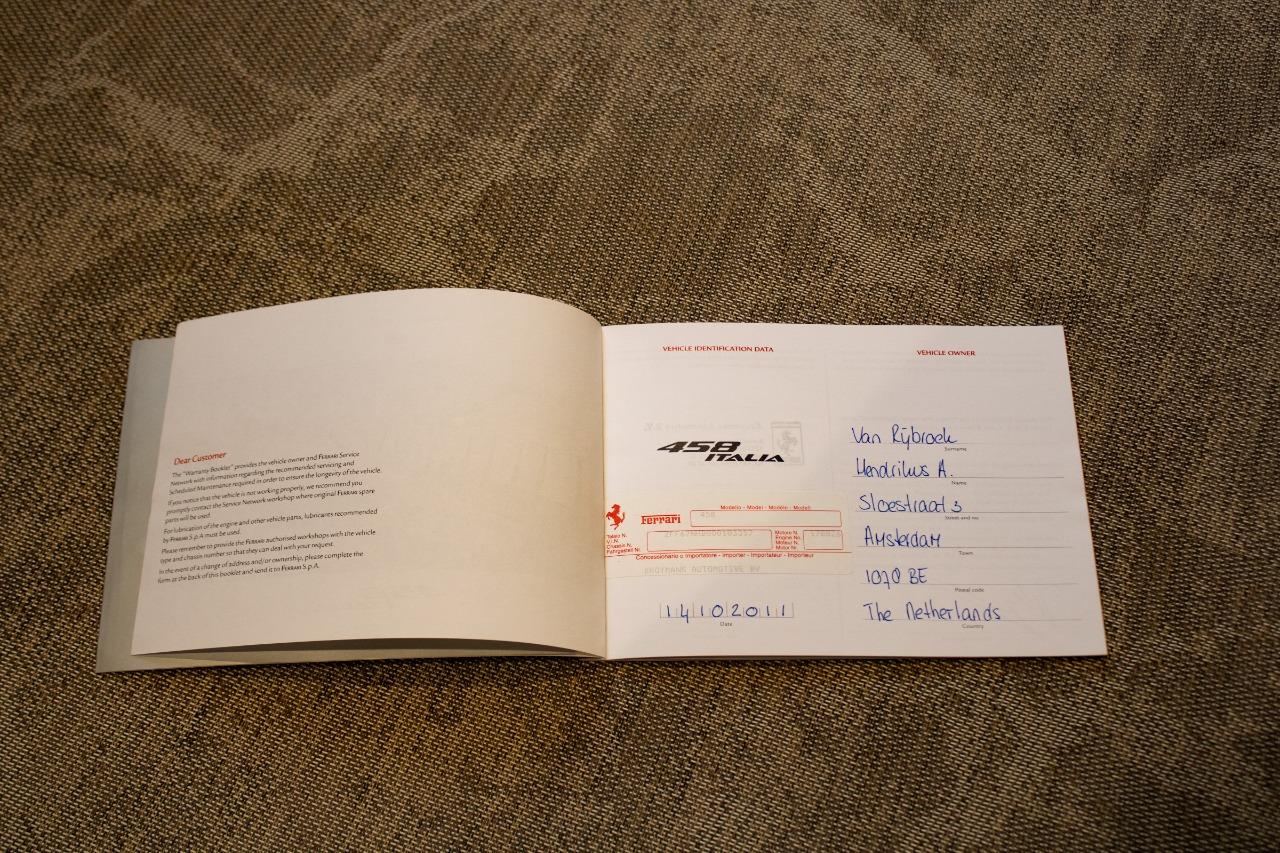 Dear Customer
The "Warranty Booklet" provides the vehicle owner and FERRARI Service
Network with information regarding the recommended servicing and
Scheduled Maintenance required in order to ensure the longevity of the vehicle.
If you notice that the vehicle is not working properly, we recommend you
promptly contact the Service Network workshop where original FERRARI spare
parts will be used.
For lubrication of the engine and other vehicle parts, lubricants recommended
by FERRARI S.p.A must be used.
Please remember to provide the FERRARI authorised workshops with the vehicle
type and chassis number so that they can deal with your request.
In the event of a change of address and/or ownership, please complete the
form at the back of this booklet and send it to FERRARI S.p.A.
VEHICLE IDENTIFICATION DATA
458
ITALIA
Modello - Model - Modèle - Modell
Ferrari
458
Telaio N.
V.I.N.
Chassis N.
Fahrgestell Nr.
Motore N.
Engine No.
Moteur N.
Motor Nr.
Concessionario o Importatore - Importer - Importateur - Importeur
KROYMANS AUTOMOTIVE BV
14102011
Date
VEHICLE OWNER
Van Rijbroek
Surname
Hendrikus A.
Name
Street and no.
Amsterdam
Town
BE
Postal code
The Netherlands
Country